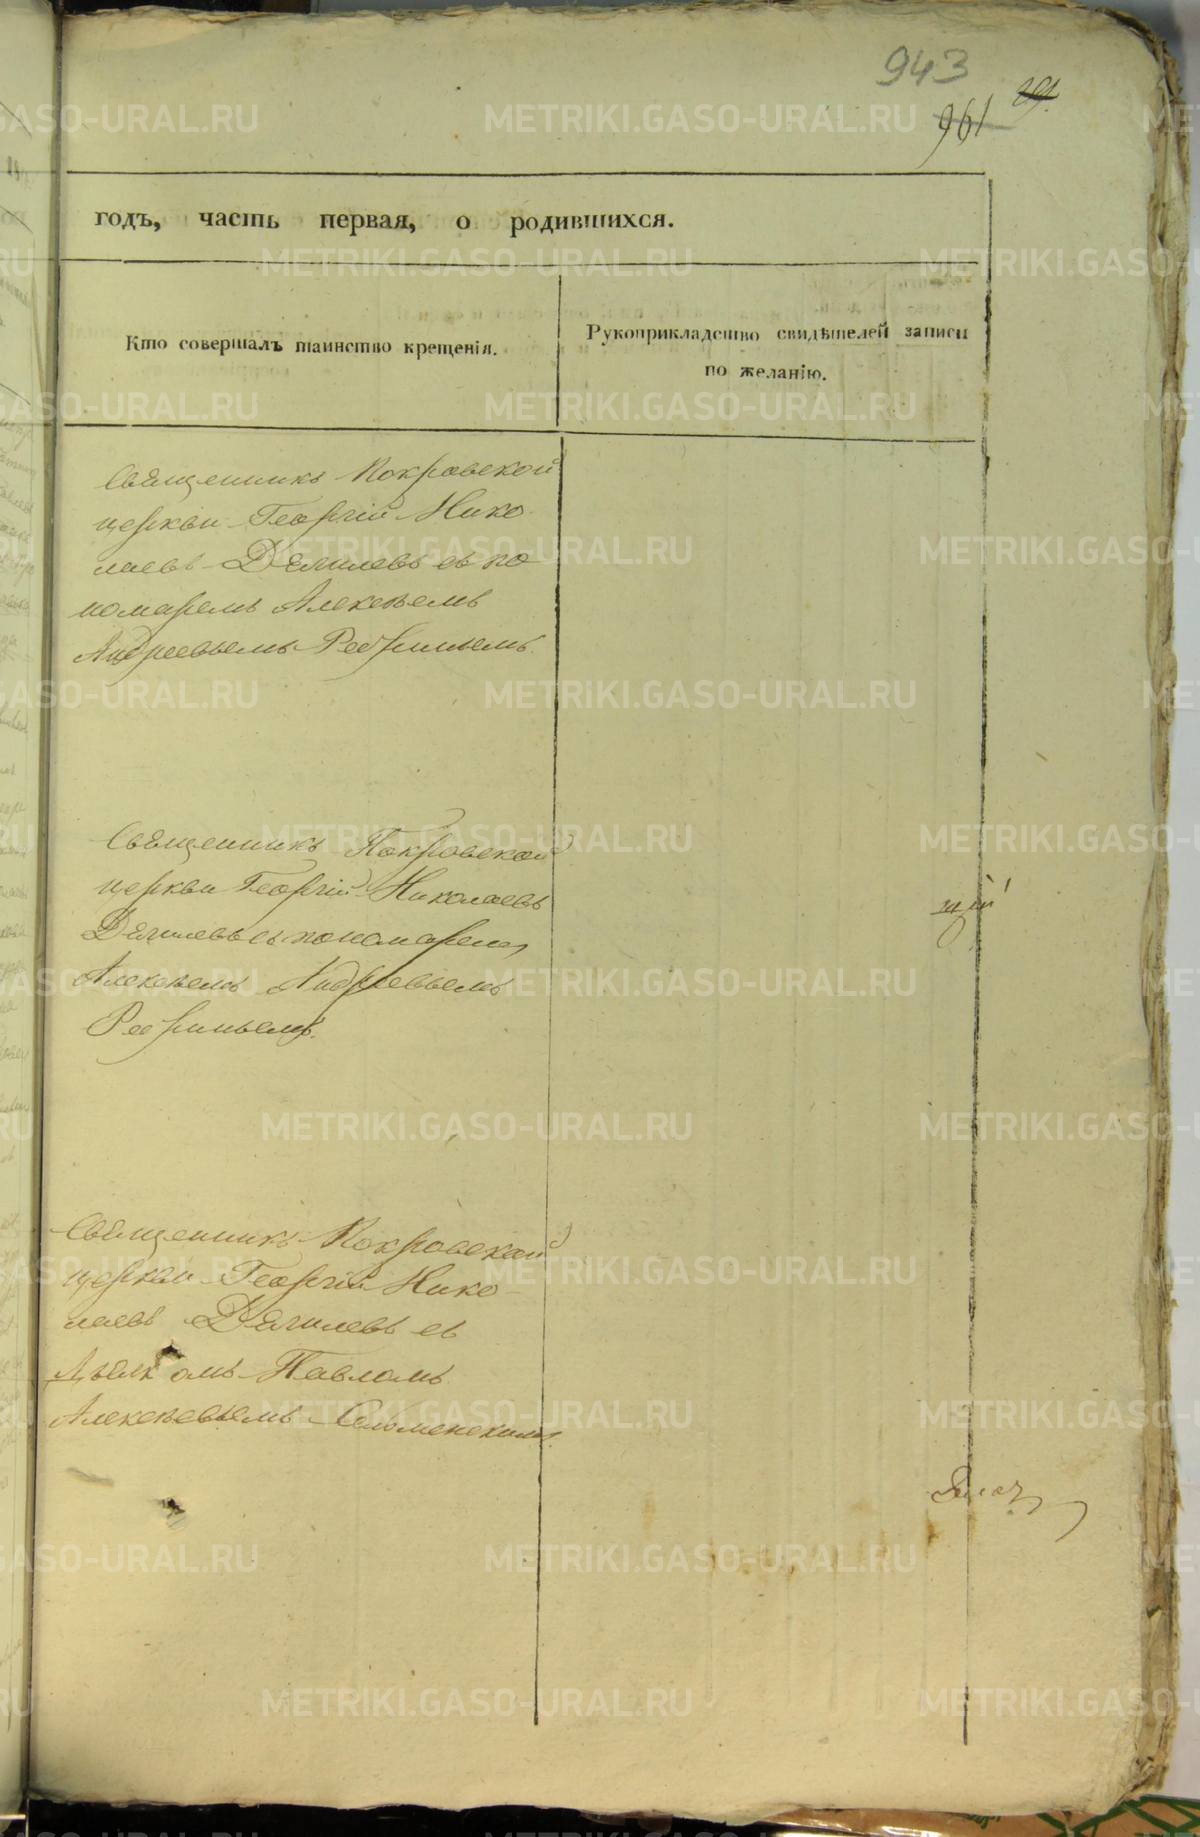 943
961
годъ, часть первая, о родившихся.
Кто совершалъ таинство крещенія.
Рукоприкладство свидѣтелей записи
по желанію.
Священникъ Покровской
церкви Георгій Нико
лаевъ Дягилевъ съ по
номаремъ Алексѣемъ
Андреевымъ
Священникъ Покровской
церкви Георгій Николаевъ
Дягилевъ съ пономаремъ
Алексѣемъ Андреевымъ
щій
Священникъ Покровской
церкви Георгій Нико
лаевъ Дягилевъ съ
Дьячкомъ Павломъ
Алексѣевымъ
METRIKI.GASO-URAL.RU